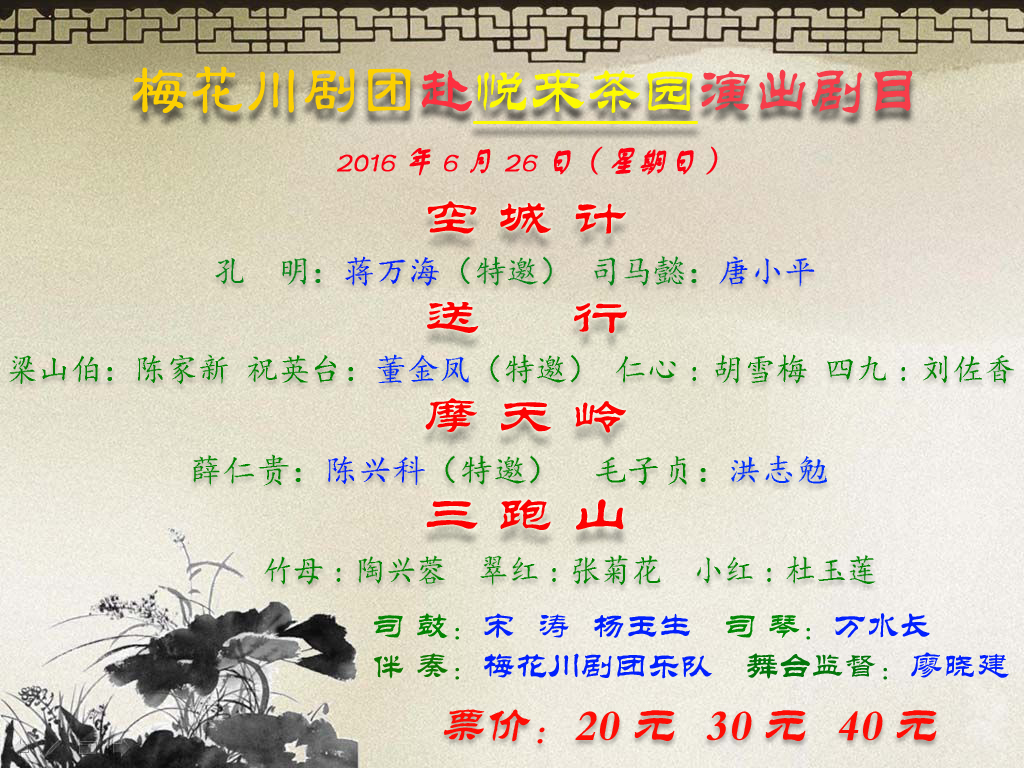 梅花川剧团赴悦来茶园演出剧目
2016 年 6 月 26 日（星期日）
空 城 计
孔 明：蒋万海（特邀） 司马懿：唐小平
送 行
梁山伯：陈家新 祝英台：董金凤（特邀） 仁心：胡雪梅 四九：刘佐香
摩 天 岭
薛仁贵：陈兴科（特邀） 毛子贞：洪志勉
三 跑 山
竹母：陶兴蓉 翠红：张菊花 小红：杜玉莲
司 鼓：宋 涛 杨玉生 司 琴：万水长
伴 奏：梅花川剧团乐队 舞台监督：廖晓建
票价：20 元 30 元 40 元